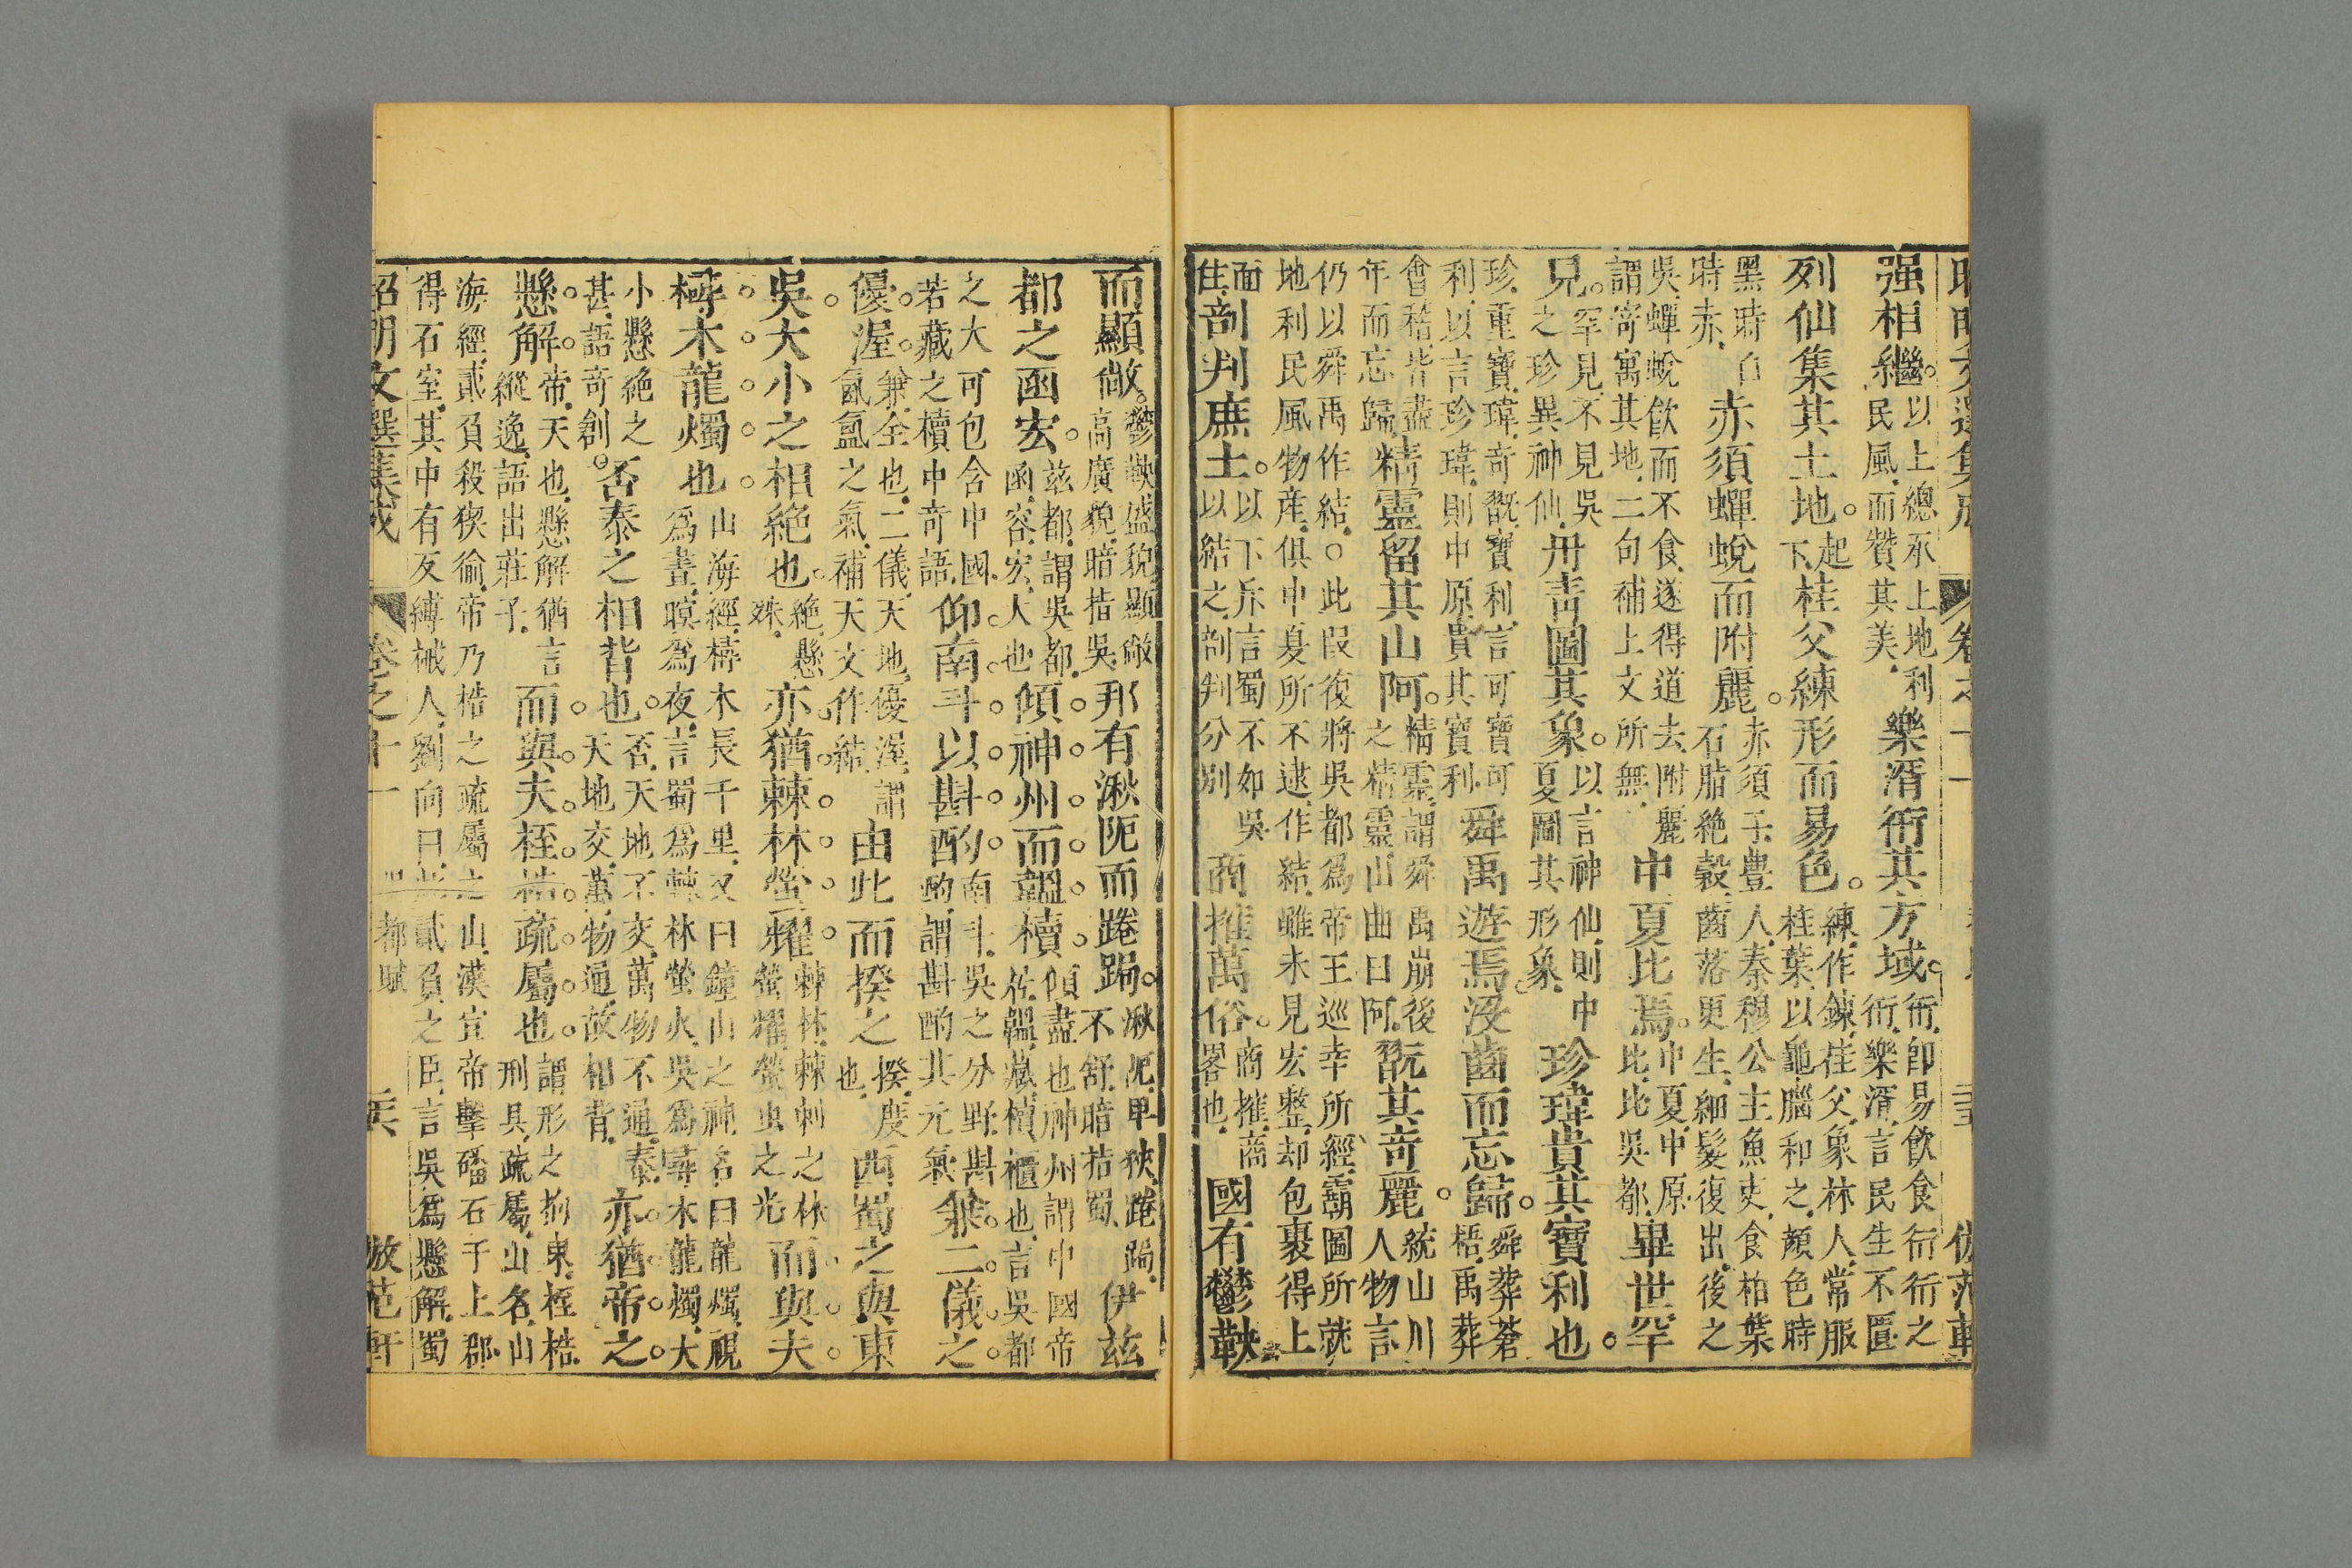 昭明文選集成 卷之十一
强相繼。以上總承上地利民風,而贊其美。樂湑衎其方域。衎卽易飲食衎衎之衎樂湑,言民生不匱
列仙集其土地。起下桂父練形而易色。練作鍊,桂父象林人,常服桂葉,以龜腦和之,顔色時
黑時白時赤。赤須蟬蛻而附麗。赤須子豊人,秦穆公主魚吏,食柏葉石脂絶穀,齒落更生,細髮復出,後之
吳,蟬蛻飲而不食,遂得道去,附麗謂寄寓其地,二句補上文所無。中夏比焉。中夏,中原比,比吳都。畢世罕
見。罕見,不見吳之珍異神仙。丹靑圖其象。以言神仙則中夏圖其形象。珍瑋貴其寶利也。
珍,重寶,瑋,奇翫,寶利,言可寶可利,以言珍瑋,則中原貴其寶利。舜禹遊焉。没齒而忘歸。舜葬蒼梧,禹葬
會稽,皆盡年而忘歸。精靈留其山阿。精靈,謂舜禹崩後之精靈,山曲曰阿。翫其奇麗。統山川人物言
仍以舜禹作結。○此叚復將吳都爲帝王巡幸所經、霸圖所就地利民風物産,俱中夏所不逮,作結,雖未見宏整,却包裹得上
面住。剖判庶土。以下斥言蜀不如吳以結之,剖判分別商搉萬俗。商搉,商畧也。國有鬱鞅
而顯敞。鬱鞅盛貌,顯敞高廣貌,暗指吳。邦有湫阨而踡跼。湫阨,卑狹,踡跼,不舒,暗指蜀。伊茲
都之函宏。茲都,謂吳都,函,容,宏,大也傾神州而韞櫝。傾盡也,神州謂中國帝在,韞,藏,櫝,櫃也,言吳都
之大可包含中國,若藏之櫝中,奇語。仰南斗以斟酌。南斗,吳之分野,斟酌謂斟酌其元氣。兼二儀之
優渥。兼,全也,二儀,天地,優渥,謂氤氳之氣,補天文作結。由此而揆之揆,度也。西蜀之與東
吳。大小之相絶也。絶,懸殊。亦猶棘林螢耀。棘林,棘刺之林螢耀,螢虫之光而與夫
㭫木龍燭也。山海經,㭫木長千里,又曰鐘山之神,名曰龍燭,視爲晝,暝爲夜,言蜀爲棘林螢火,吳爲㭫木龍燭,大
小懸絶之甚,語奇創。否泰之相背也。否,天地不交,萬物不通,泰,天地交,萬物通,故相背。亦猶帝之
懸解。帝,天也,懸解猶言縱逸,語出莊子。而與夫桎梏疏屬也。謂形之拘束,桎梏,刑具,疏屬,山名,山
海經,貳負殺猰㺄,帝乃梏之疏屬之山,漢宣帝擊磻石于上郡,得石室,其中有反縛械人,劉向曰,此貳負之臣,言吳爲懸解,蜀
昭明文選集成 卷之十一 都賦 放范軒